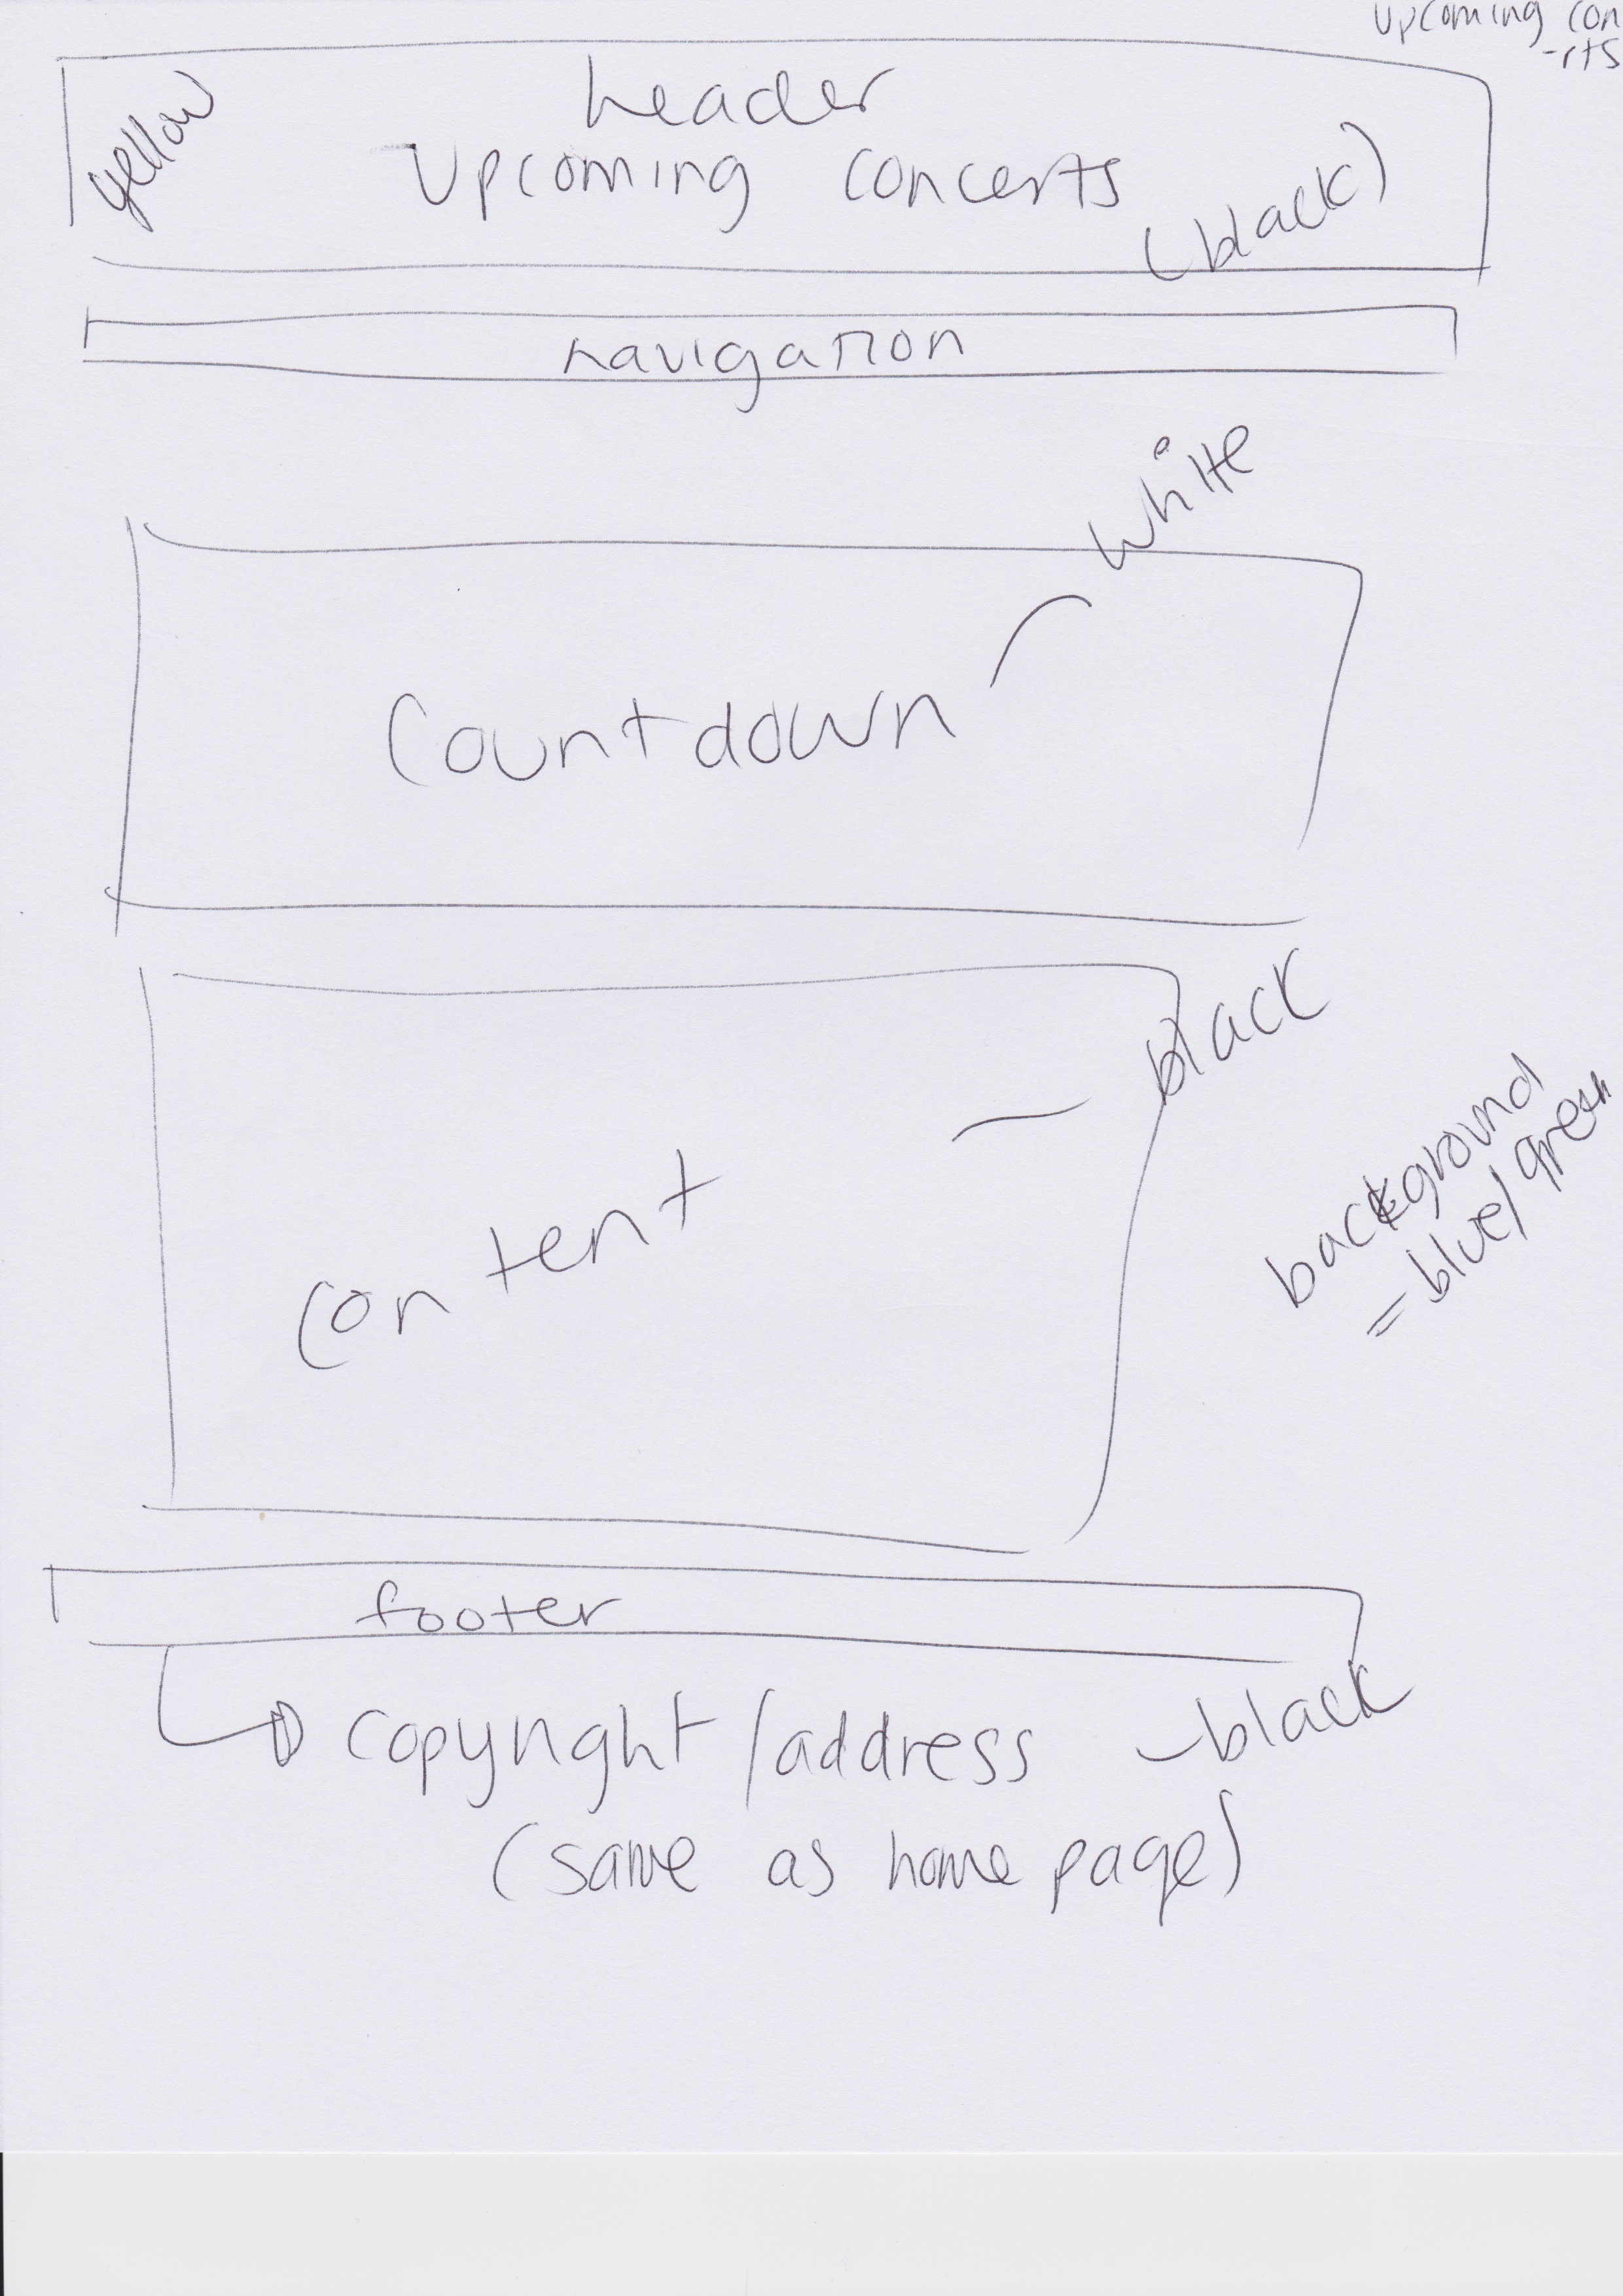 upcoming con
-rts
header
yellow
Upcoming concerts
(black)
navigation
white
Countdown
black
content
background
= blue/green
footer
copyright/address - black
(same as home page)